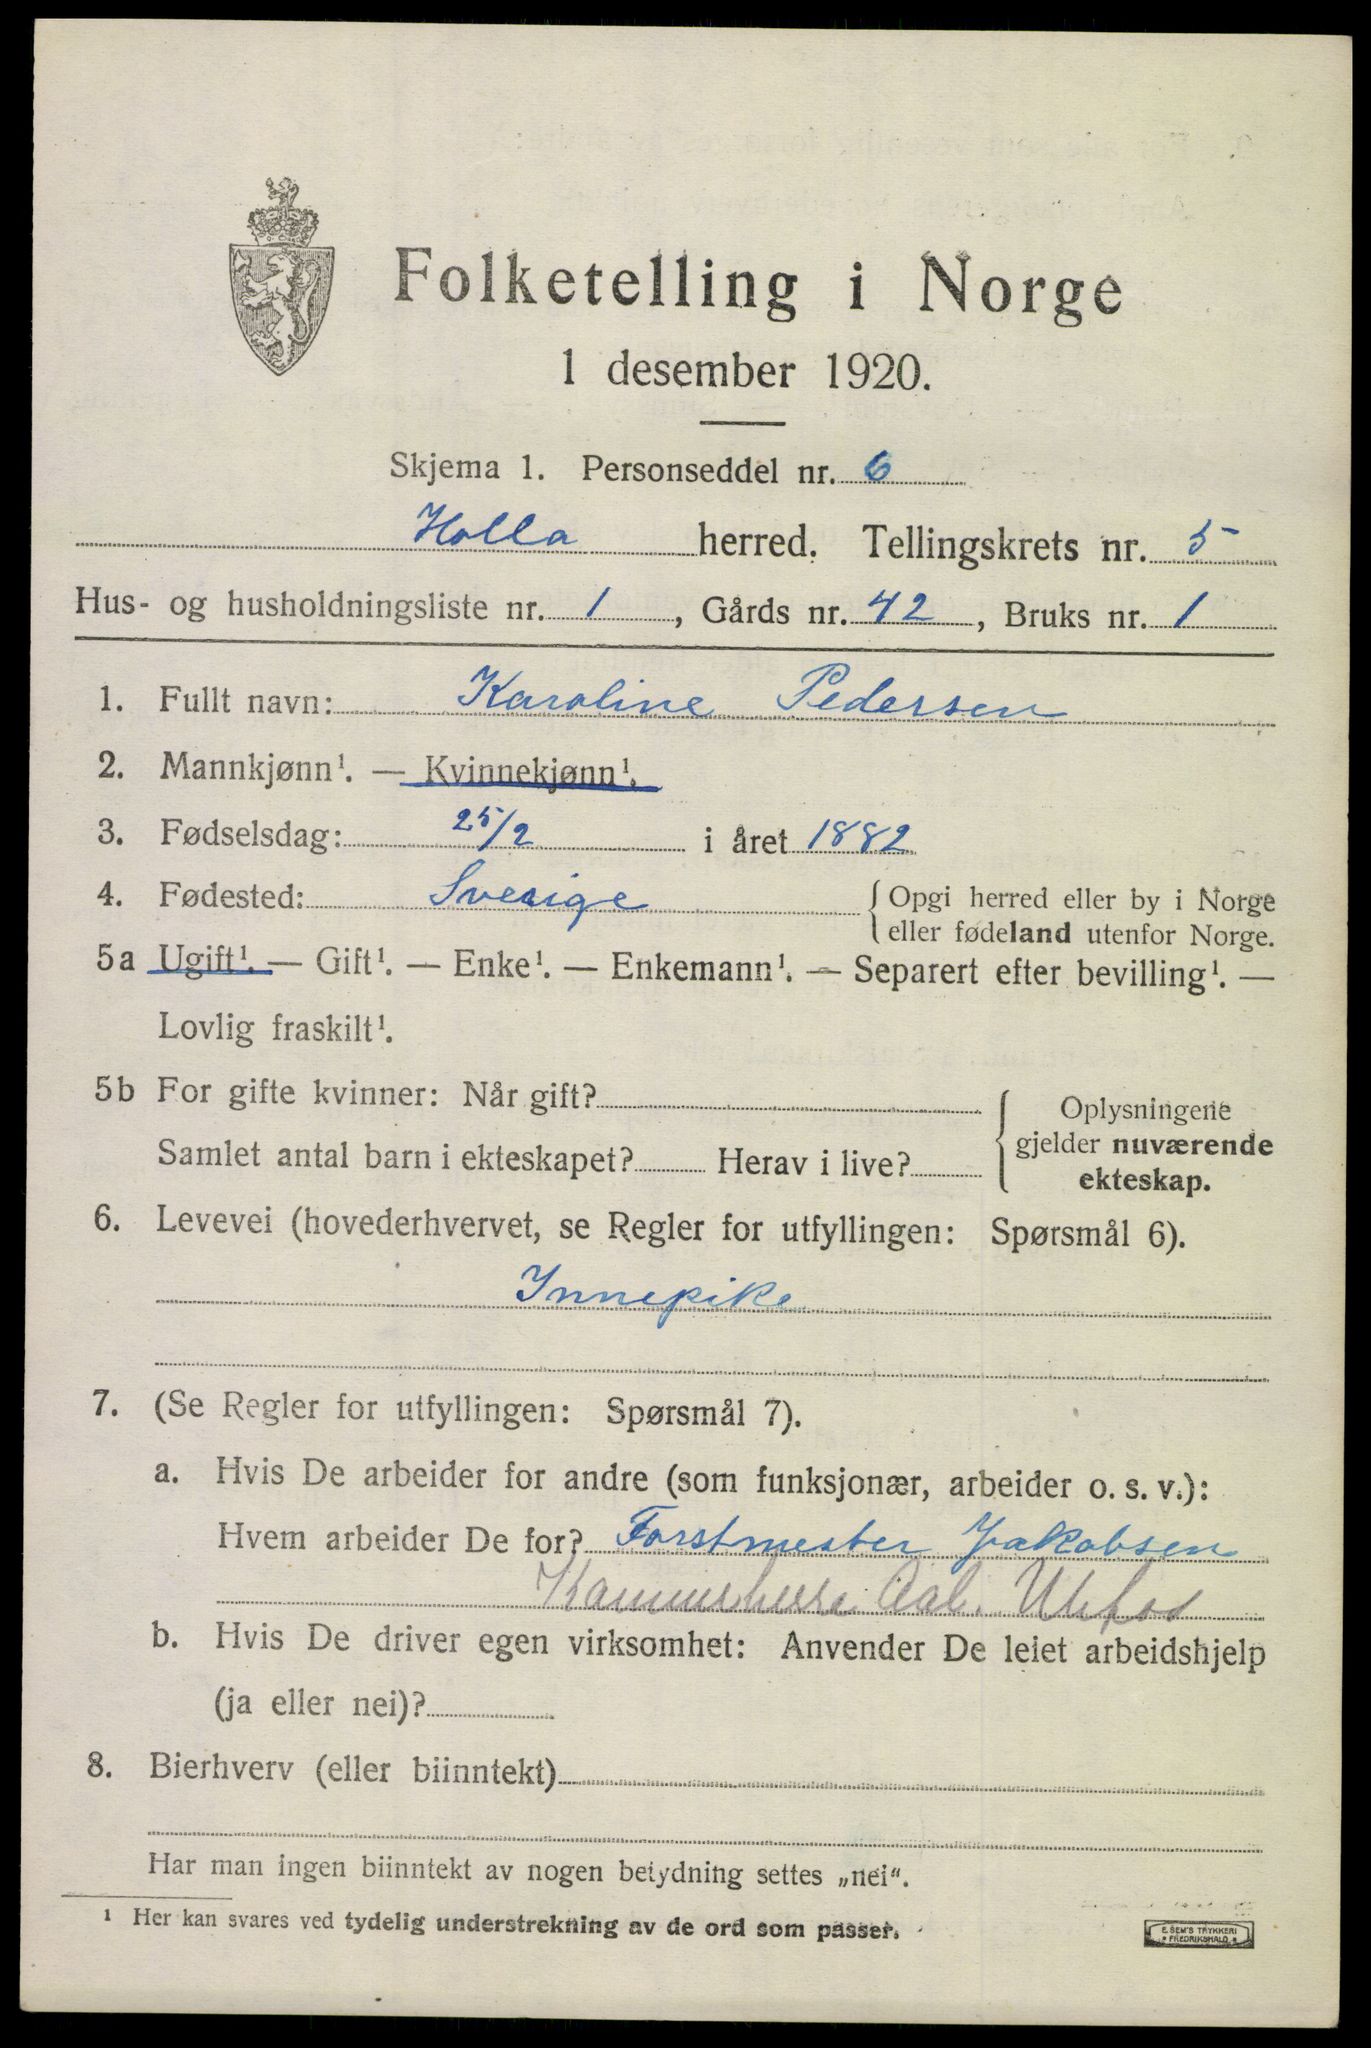 Folketelling i Norge
1 desember 1920.
Skjema 1. Personseddel nr. 6
Holla herred. Tellingskrets nr. 5
Hus- og husholdningsliste nr. 1, Gårds nr. 42, Bruks nr. 1
1. Fullt navn: Karoline Pedersen
2. Mannkjønn¹. — Kvinnekjønn¹.
3. Fødselsdag: 25/2 i året 1882
4. Fødested: Sverige { Opgi herred eller by i Norge
eller fødeland utenfor Norge.
5a Ugift¹. — Gift¹. — Enke¹. — Enkemann¹. — Separert efter bevilling¹. —
Lovlig fraskilt¹.
5b For gifte kvinner: Når gift?
Samlet antal barn i ekteskapet? Herav i live?
{ Oplysningene
gjelder nuværende
ekteskap.
6. Levevei (hovederhvervet, se Regler for utfyllingen: Spørsmål 6).
Innepike
7. (Se Regler for utfyllingen: Spørsmål 7).
a. Hvis De arbeider for andre (som funksjonær, arbeider o. s. v.):
Hvem arbeider De for? Forstmester Jakobsen
Kammerherre Aal. Ulefos
b. Hvis De driver egen virksomhet: Anvender De leiet arbeidshjelp
(ja eller nei)?
8. Bierhverv (eller biinntekt)
Har man ingen biinntekt av nogen betydning settes „nei“.
¹ Her kan svares ved tydelig understrekning av de ord som passer.
E. SEM'S TRYKKERI
FREDRIKSHALD